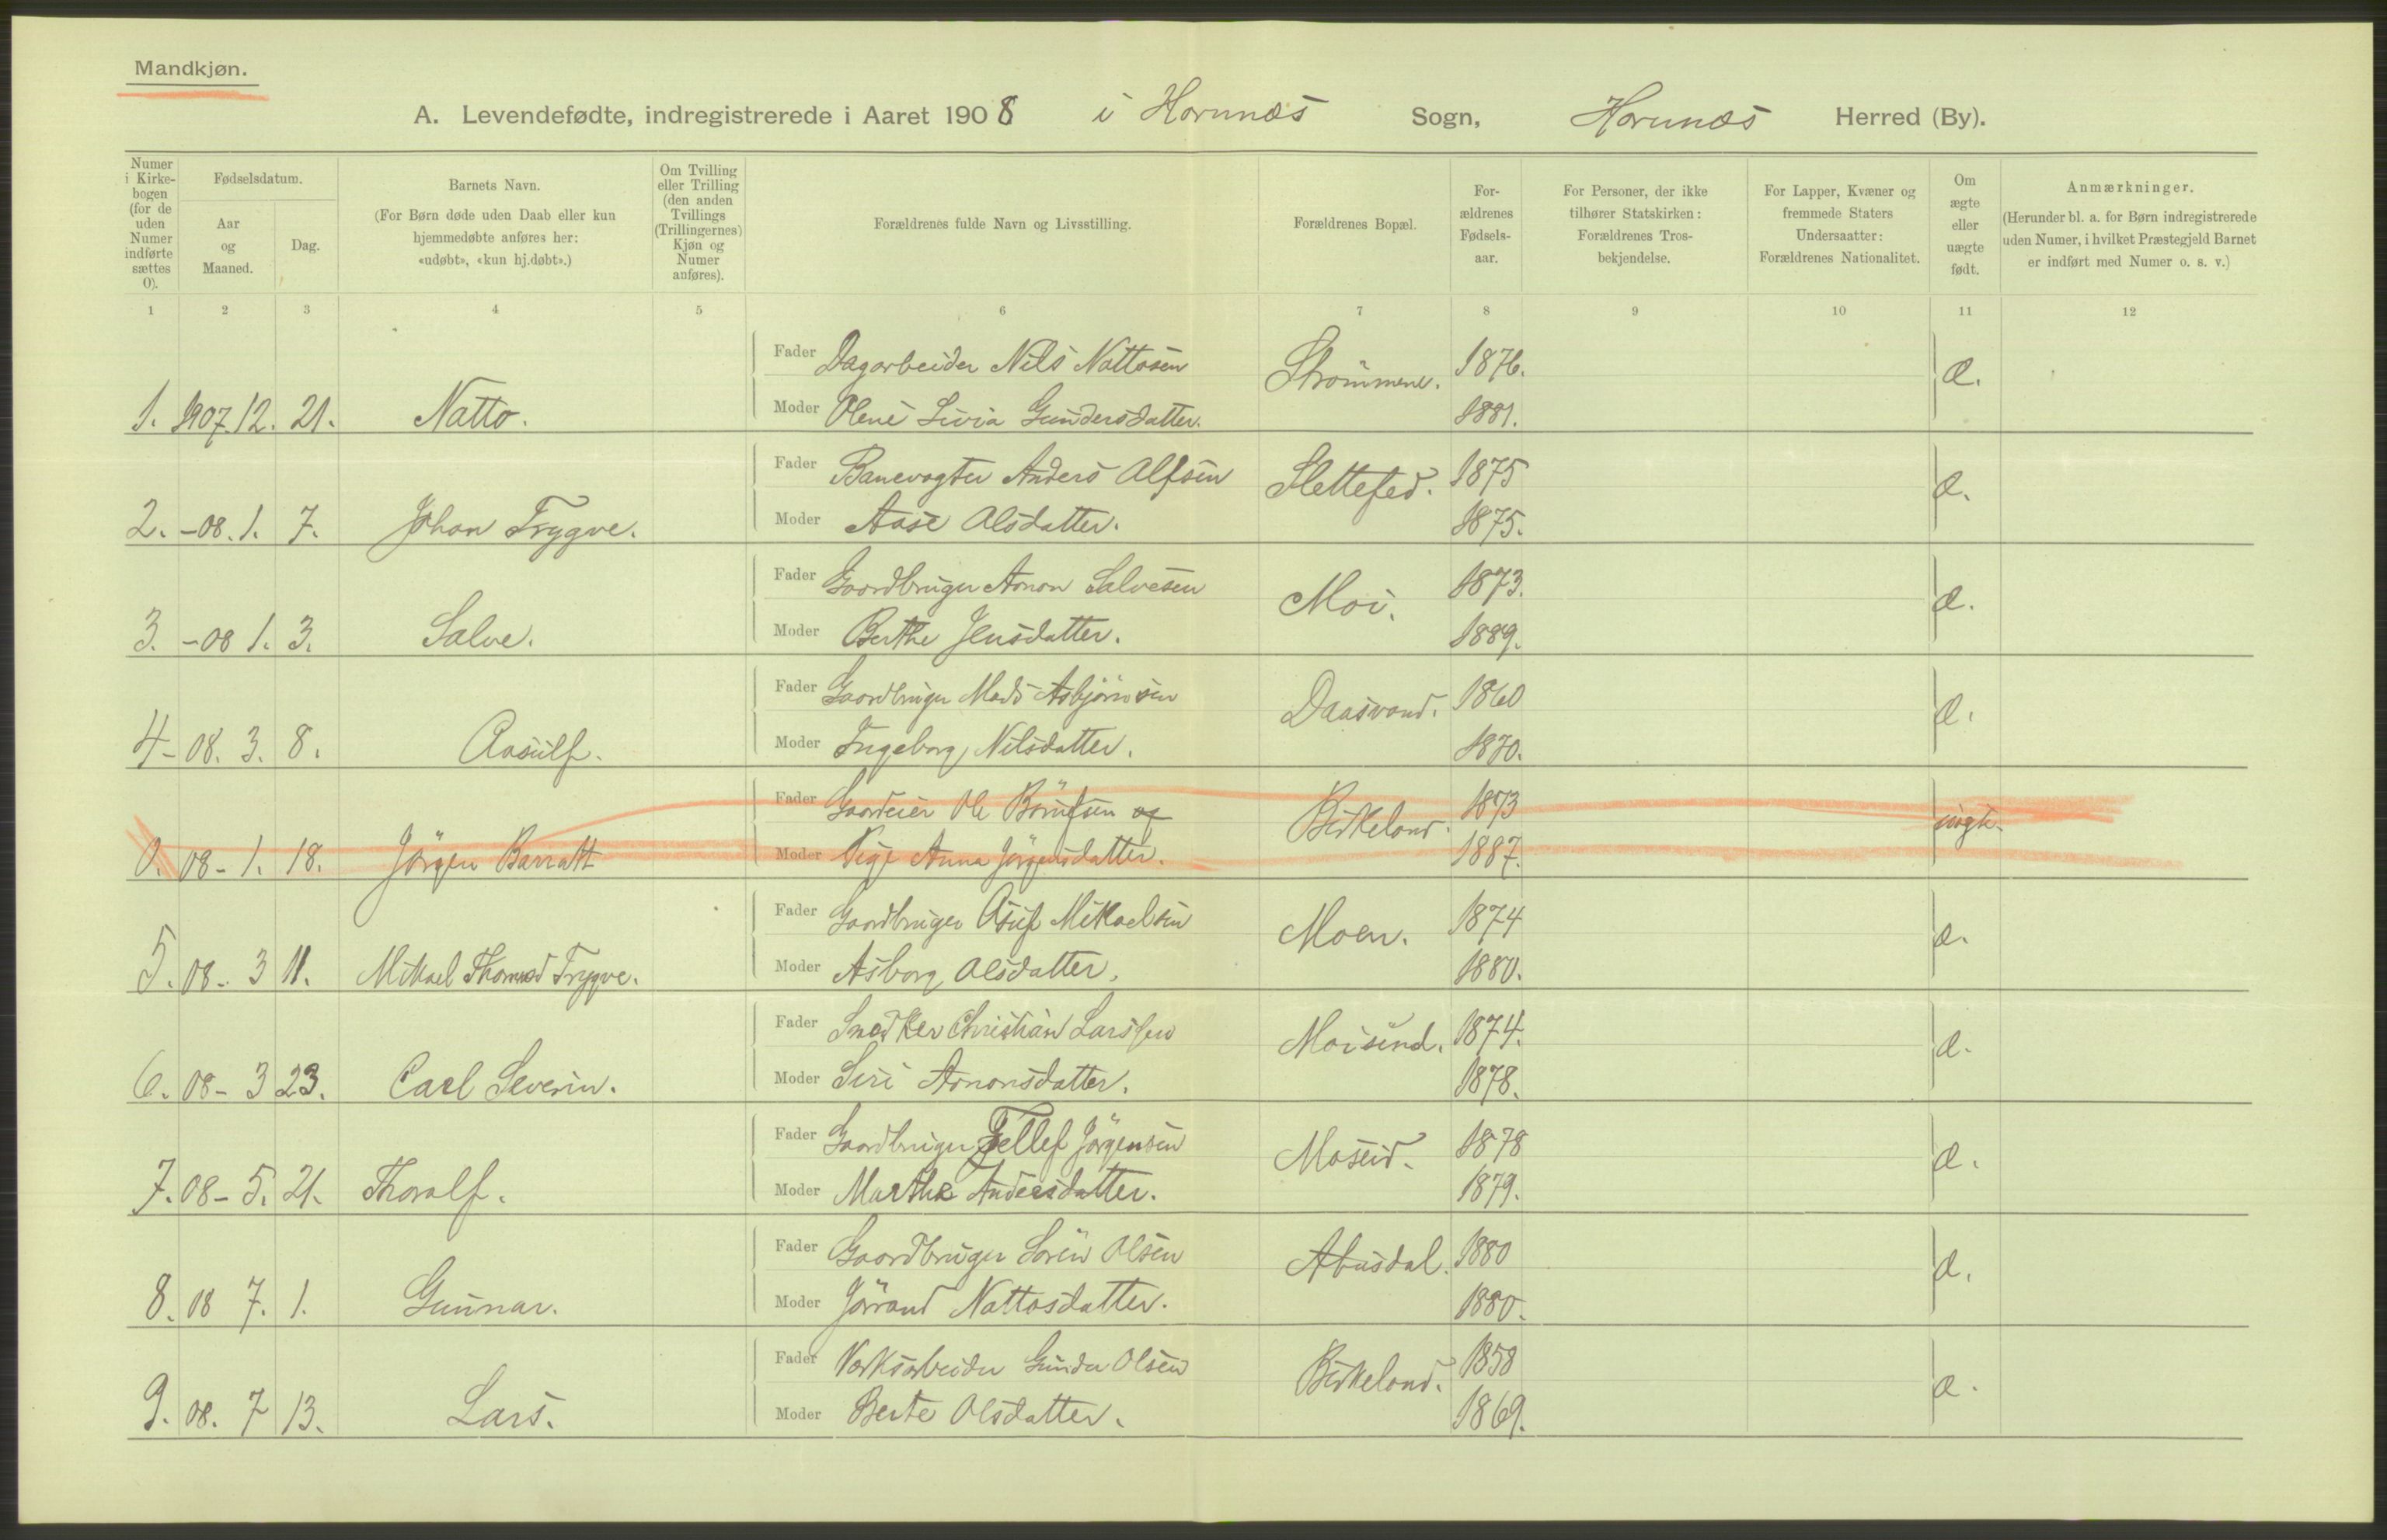 Mandkjøn.
A. Levendefødte, indregistrerede i Aaret 1908 i Hornnæs Sogn, Hornnæs Herred (By).
Numer i Kirkebogen (for de uden Numer indførte sættes 0).
Fødselsdatum.
Aar og Maaned.
Dag.
Barnets Navn.
(For Børn døde uden Daab eller kun hjemmedøbte anføres her: «udøbt», «kun hj.døbt».)
Om Tvilling eller Trilling (den anden Tvillings (Trillingernes) Kjøn og Numer anføres).
Forældrenes fulde Navn og Livsstilling.
Forældrenes Bopæl.
Forældrenes Fødselsaar.
For Personer, der ikke tilhører Statskirken: Forældrenes Trosbekjendelse.
For Lapper, Kvæner og fremmede Staters Undersaatter: Forældrenes Nationalitet.
Om ægte eller uægte født.
Anmærkninger.
(Herunder bl. a. for Børn indregistrerede uden Numer, i hvilket Præstegjeld Barnet er indført med Numer o. s. v.)
1 2 3 4 5 6 7 8 9 10 11 12
Fader Dagarbeider Nils Nattosen Strømmene. 1876. æ.
1. 1907 12. 21. Natto. Moder Olene Livia Gundersdatter. 1881.
Fader Banevogter Anders Alfsen Slettefed. 1875 æ.
2. -08. 1. 7. Johan Trygve. Moder Aase Olsdatter. 1875.
Fader Gaardbruger Aanon Salvesen Moi. 1873. æ.
3. -08 1. 3. Salve. Moder Berthe Jensdatter. 1889.
Fader Gaardbruger Mads Asbjørnsen Daasvand. 1860 æ.
4 - 08. 3. 8. Aasulf. Moder Ingeborg Nilsdatter. 1870.
Fader Gaardeier Ole Børufsen og Birkeland. 1873 uægte.
0. 08 - 1. 18. Jørgen Barratt Moder Pige Anna Jørgensdatter. 1887.
Fader Gaardbruger Asuf Mikaelsen Moen. 1874 æ.
5. 08 - 3 11. Mikael Thomod Trygve. Moder Asborg Olsdatter. 1880.
Fader Snedker Christian Larssen Moisund. 1874. æ.
6. 08 - 3 23. Carl Severin. Moder Siri Aanonsdatter. 1878.
Fader Gaardbruger Tellef Jørgensen Moseid. 1878 æ.
7. 08 - 5. 21. Thoralf. Moder Marthe Andersdatter. 1879.
Fader Gaardbruger Søren Olsen Abusdal. 1880 æ.
8. 08 7. 1. Gunnar. Moder Jørand Nattosdatter. 1880.
Fader Værksarbeider Gunder Olsen Birkeland. 1858 æ.
9. 08. 7 13. Lars. Moder Berte Olsdatter. 1869.